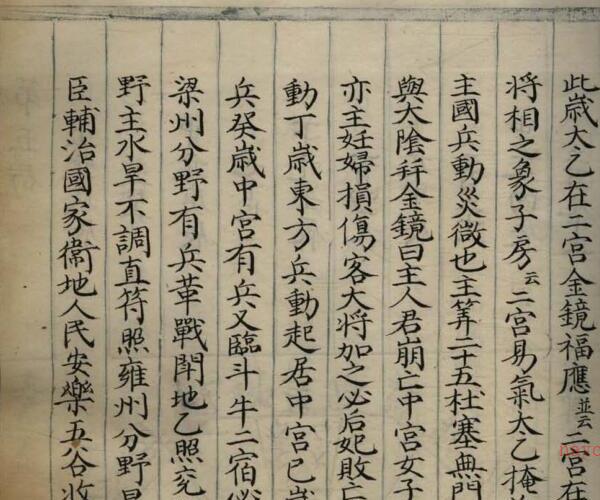 此歲太乙在二宫金鏡福應並云二宫在
將相之象子房云二宫易氣太乙掩
主國兵動災微也主筭二十五杜塞無門
與太陰并金鏡曰主人君崩亡中宫女子
亦主妊婦損傷客大將加之必后妃敗亡
動丁歲東方兵動起居中宫已歲
兵癸歲中宫有兵又臨斗牛二宿必
梁州分野有兵革戰鬪地乙照兖
野主水旱不調直符照雍州分野
臣輔治國家衛地人民安樂五谷收